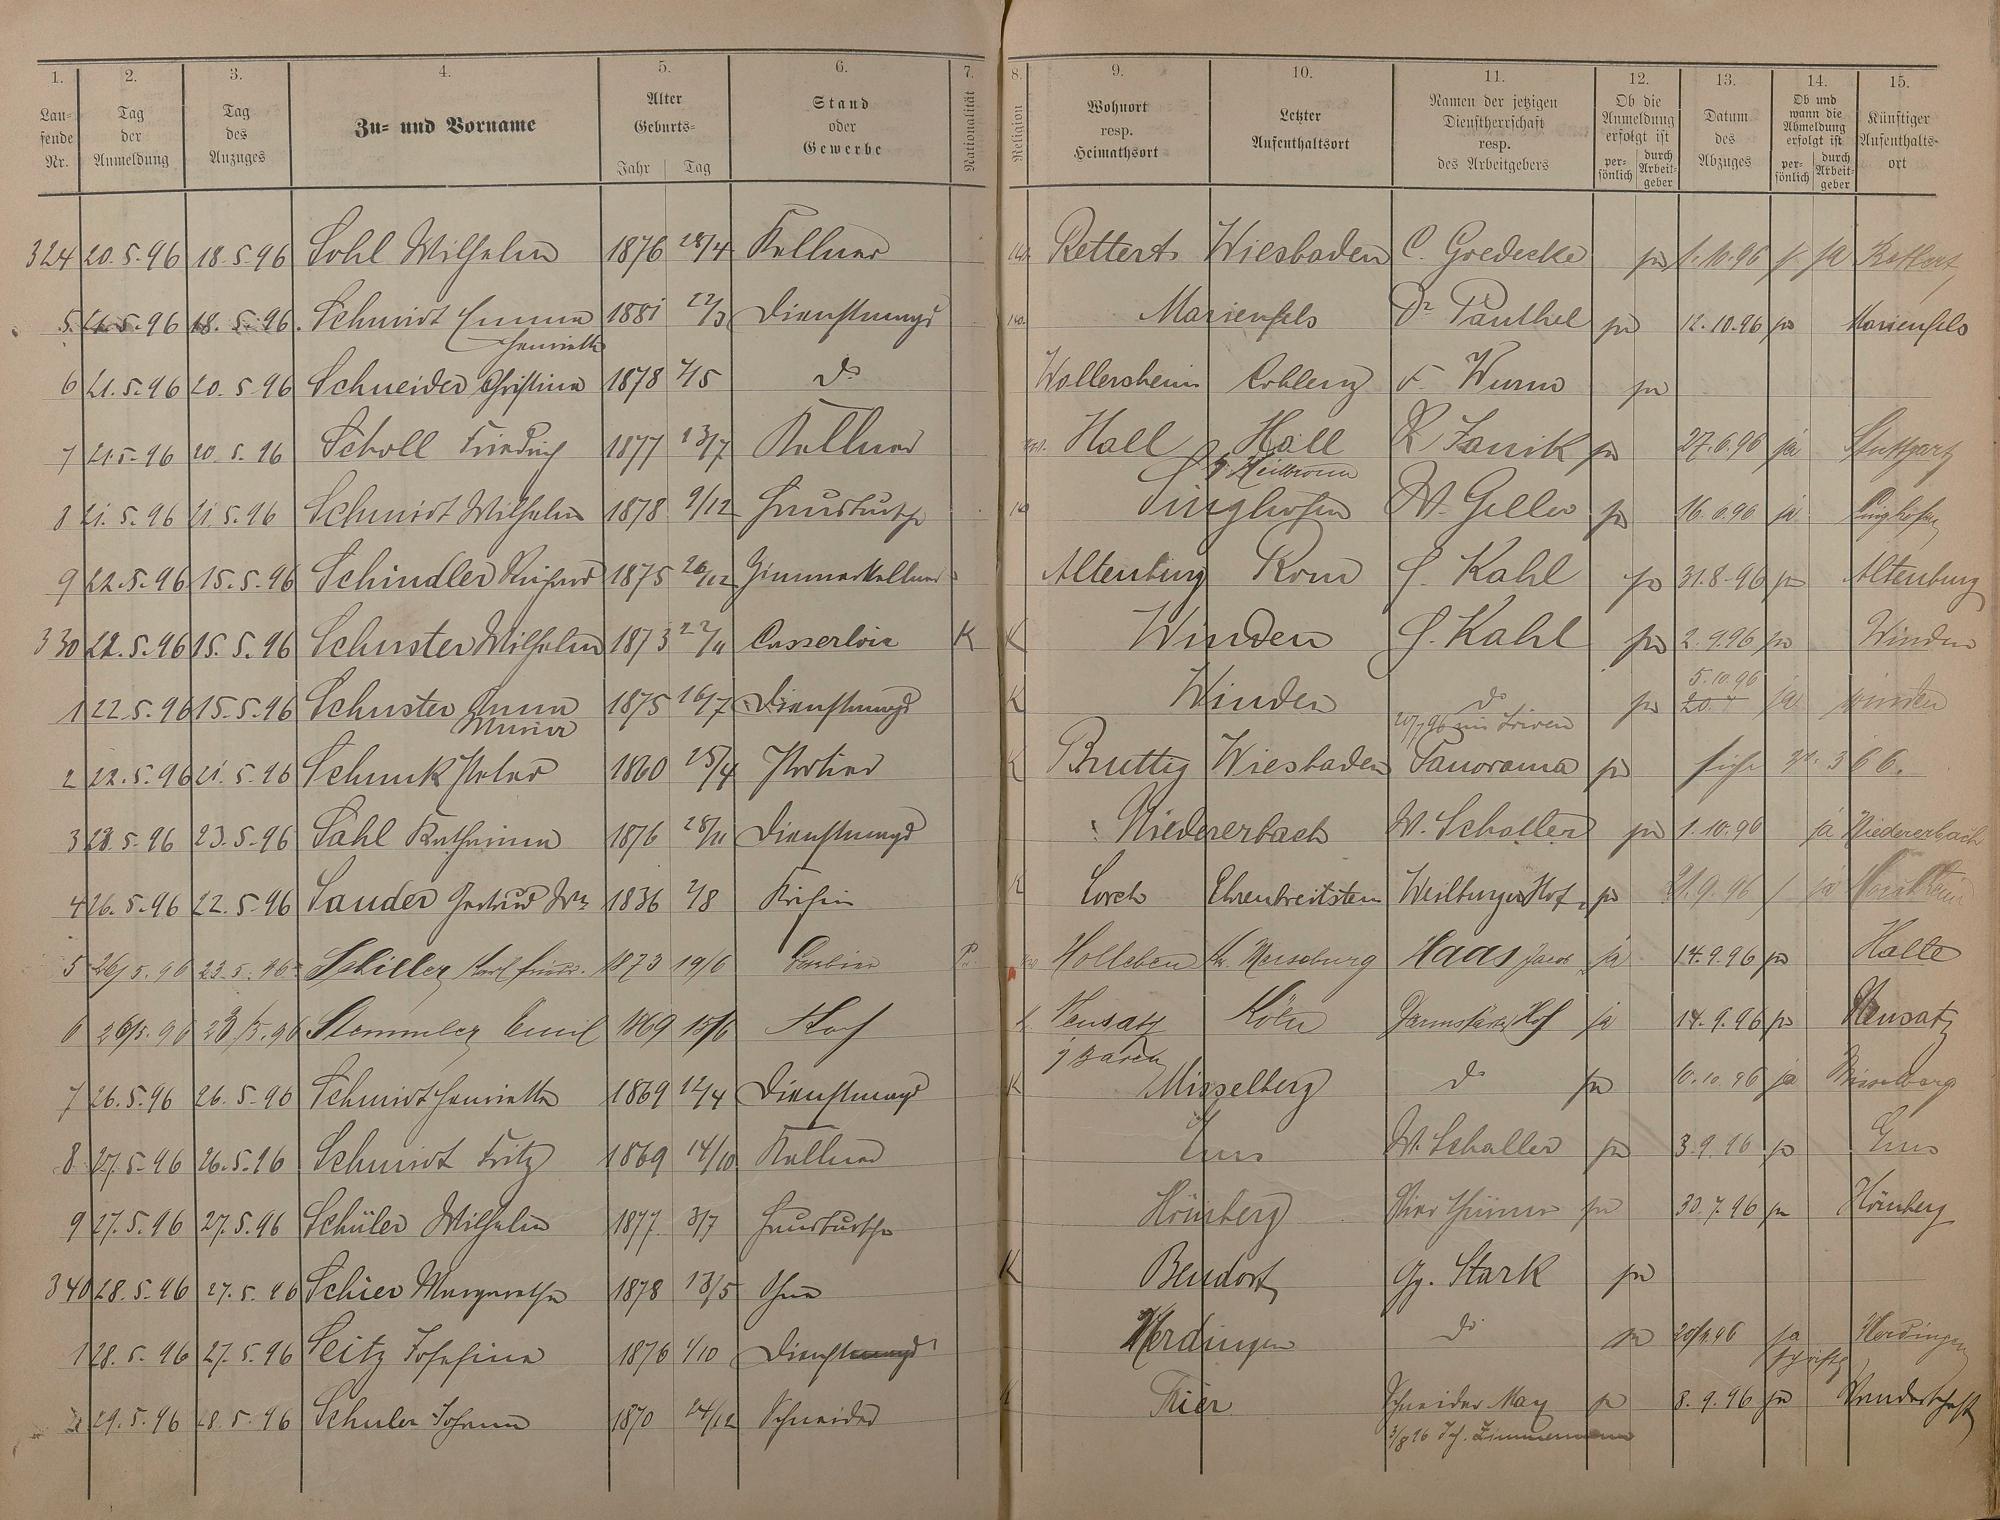 1. 2. 3. 4. 5. 6. 7. 8. 9. 10. 11. 12. 13. 14. 15.
Laufende Nr. Tag der Anmeldung Tag des Anzuges Zu- und Vorname Alter Geburts- Jahr Tag Stand oder Gewerbe Nationalität Religion Wohnort resp. Heimathsort Letzter Aufenthaltsort Namen der jetzigen Dienstherrschaft resp. des Arbeitgebers Ob die Anmeldung erfolgt ist persönlich durch Arbeitgeber Datum des Abzuges Ob und wann die Abmeldung erfolgt ist persönlich durch Arbeitgeber Künftiger Aufenthaltsort
324 20.5.96 18.5.96 Sohl Wilhelm 1876 28/4 Kellner Rettert Wiesbaden C. Goedecke ja 1.10.96 ja Rettert
5 21.5.96 18.5.96 Schmidt Emma 1881 22/3 Dienstmagd Marienfels Dr Panthel ja 12.10.96 ja Marienfels
Henriette
6 21.5.96 20.5.96 Schneider Christina 1878 7/5 do Wollersheim Coblenz F. Wurm ja
7 21.5.96 20.5.96 Scholl Friedrich 1877 23/7 Kellner Hall Hall R Janik ja 27.6.96 ja Stuttgart
Heilbronn
8 21.5.96 21.5.96 Schmidt Wilhelm 1878 9/12 Hausbursche Singhofen W. Geller ja 16.6.96 ja Singhofen
9 22.5.96 15.5.96 Schindler Richard 1875 20/12 Zimmerkellner Altenburg Rom J. Kahl ja 31.8.96 ja Altenburg
330 22.5.96 15.5.96 Schuster Wilhelm 1873 22/11 Casserloir K K Winden J. Kahl ja 2.9.96 ja Winden
5.10.96
1 22.5.96 15.5.96 Schuster Anna 1875 16/7 Dienstmagd K Winden do ja ja Winden
Maria
2 22.5.96 21.5.96 Schunk Peter 1860 25/4 Portier K Bruttig Wiesbaden Panorama ja siehe Nr. 366.
3 23.5.96 23.5.96 Sahl Katharina 1876 28/11 Dienstmagd Niedererbach W. Schaller ja 1.10.96 ja Niedererbach
4 26.5.96 22.5.96 Sauder Gertrud Ww 1836 2/8 Köchin K Lorch Ehrenbreitstein Weilburger Hof ja 21.9.96 ja
5 26/5.96 23.5.96 Schiller Karl 1873 19/6 Barbier P. Holleben Kr. Merseburg Haas Jacob ja 14.9.96 ja Halle
6 26/5.96 23/5.96 Stemmler Emil 1869 15/6 Koch K Neusatz Köln Darmstädter Hof ja 14.9.96 ja Neusatz
i Baden
7 26.5.96 26.5.96 Schmidt Henriette 1869 12/4 Dienstmagd K Misselberg do ja 10.10.96 ja Misselberg
8 27.5.96 26.5.96 Schmidt Fritz 1869 14/10 Kellner Ems W. Schaller ja 3.9.96 ja Ems
9 27.5.96 27.5.96 Schüler Wilhelm 1877 3/7 Hausbursche Hömberg ja 30.7.96 ja Hömberg
340 28.5.96 27.5.96 Schier Margarethe 1878 13/5 Ohne K Bendorf Gg. Stark ja
1 28.5.96 27.5.96 Seitz Josefina 1876 1/10 Dienstmagd Herdingen do ja 20/9.96 ja Herdingen
schriftl
2 29.5.96 28.5.96 Schuler Johann 1870 24/12 Schneider K Trier Schneider May ja 8.9.96 ja Wanderschaft
3/8 96 Jos. Zimmermann